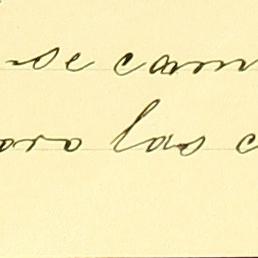 se cam
oro las c